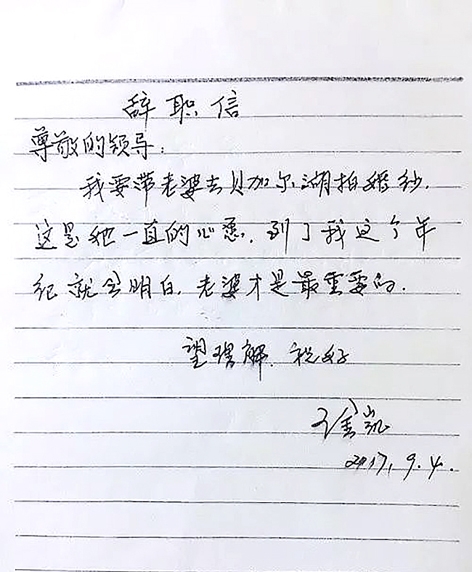 辞职信
尊敬的领导:
我要带老婆去贝加尔湖拍婚纱,
这是她一直的心愿,到了我这个年
纪就会明白,老婆才是最重要的.
望理解,祝好
徐凯
2017,9.4.